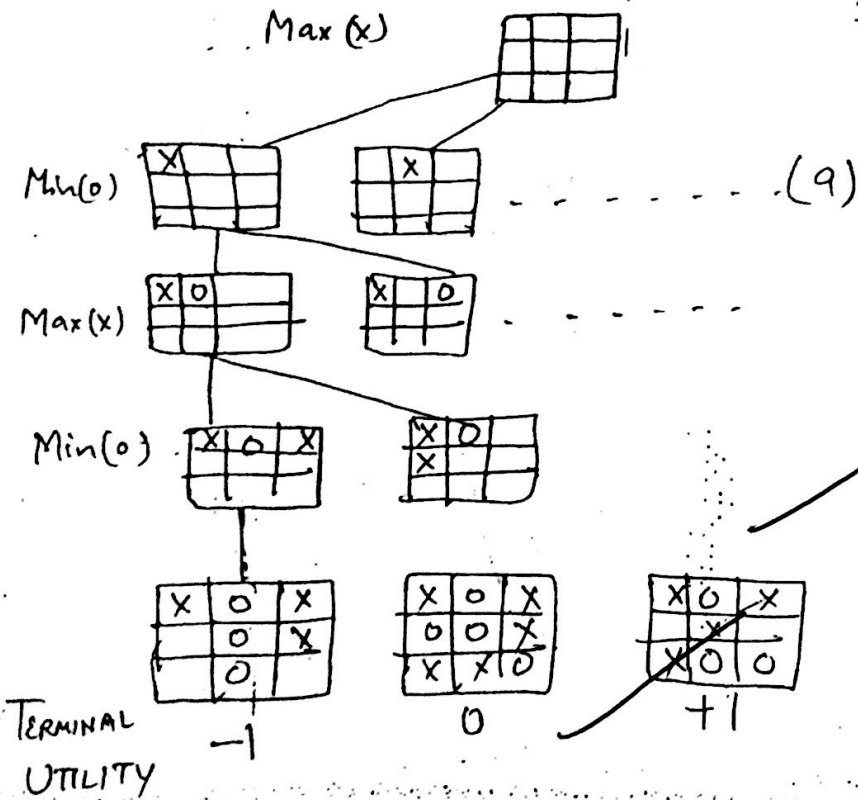 Max (x)
Min(0) X X (9)
Max(x) X O X O
Min(0) X O X X O
X
X O X X O X X O X
O X O O X X
O X X O X O O
TERMINAL -1 0 +1
UTILITY